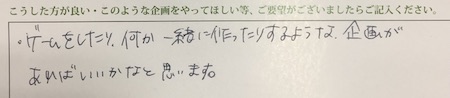 こうした方が良い・このような企画をやってほしい等、ご要望がございましたらご記入ください。
・ゲームをしたり、何か一緒に作ったりするような、企画が
あればいいかなと思います。